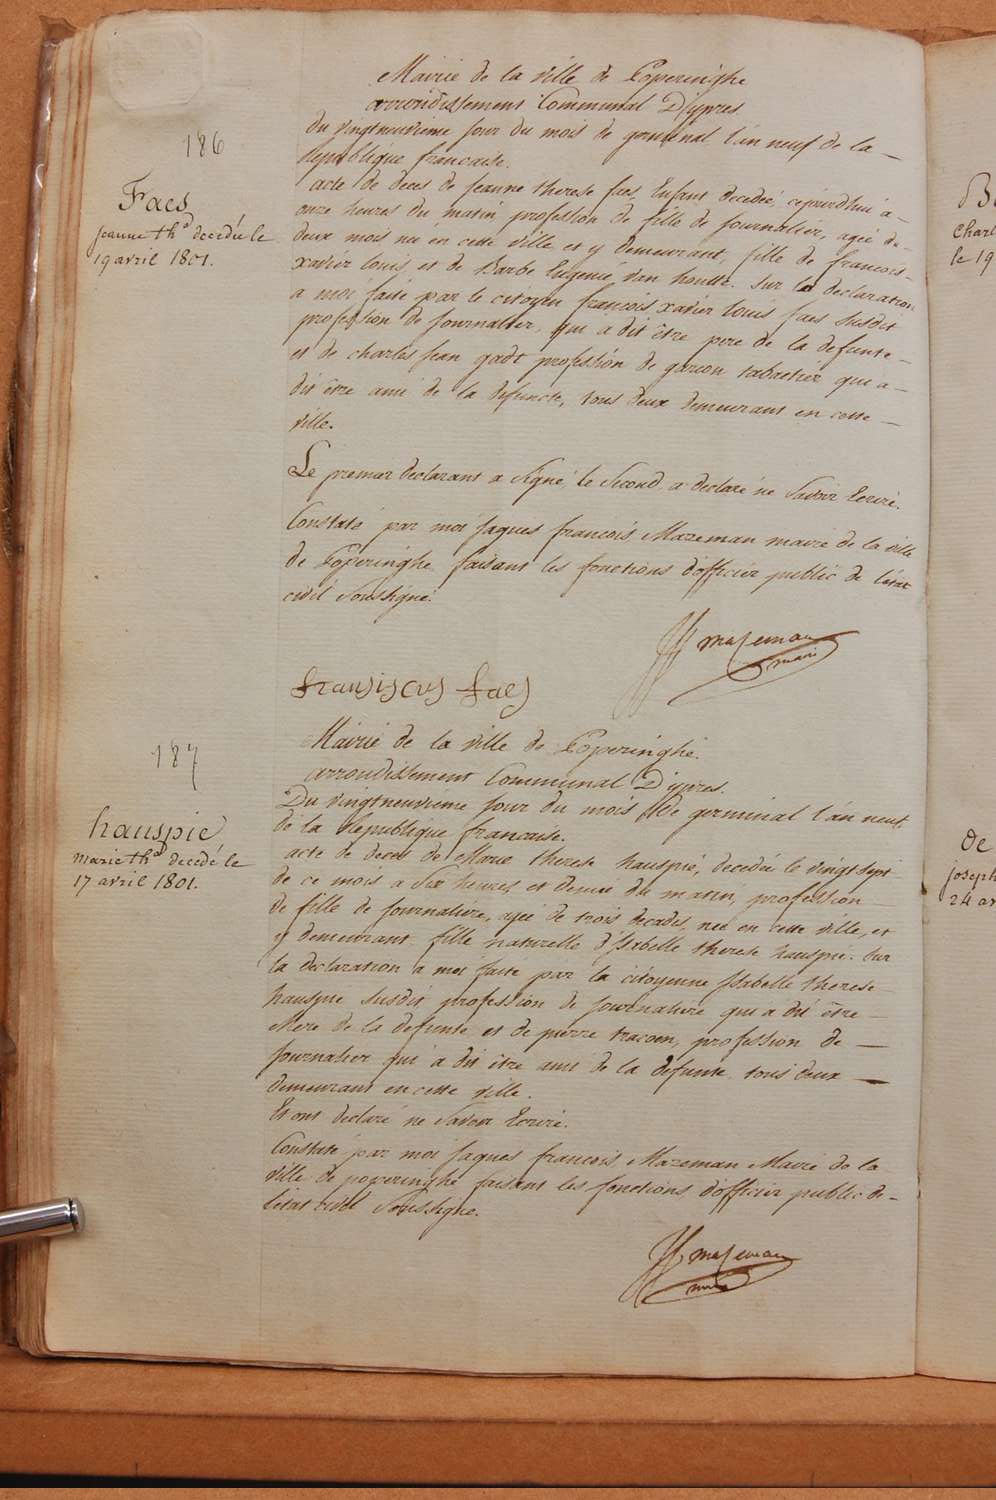 186
Faes
jeanne th.ᵃ decedée le
19 avril 1801.
Mairie de la ville de Poperinghe
arrondissement Communal D'ypres.
du vingtneuvieme jour du mois de germinal l'an neuf de la
Republique francaise.
acte de deces de jeanne therese faes, Enfant decedée, cejourdhui a
onze heures du matin, profession de fille de journalier, agée de
deux mois née en cette ville et y demeurant, fille de francois
xavier louis, et de Barbe Eugenie van houtte. Sur la declaration
a moi faite par le citoyen francois xavier louis faes susdit
profession de journalier, qui a dit être pere de la defunte
et de charles jean gadt profession de garcon tabactier qui a
dit être ami de la defuncte, tous deux demeurant en cette
ville.
Le premier declarant a signé, le second a declaré ne savoir Ecrire.
Constaté par moi jaques francois Mazeman maire de la ville
de Poperinghe faisant les fonctions d'officier public de l'état
civil soussigné.
JF mazeman
maire
fransiscus faes
187
hauspie
marie th.ᵃ decedé le
17 avril 1801.
Mairie de la ville de Poperinghe.
arrondissement Communal D'ypres.
Du vingtneuvieme jour du mois De germinal l'an neuf
de la Republique francaise.
acte de deces de Marie therese hauspié, decedée le vingt sept
de ce mois a six heures et demie du matin, profession
de fille de journaliere, agée de trois decades, née en cette ville, et
y demeurant fille naturelle d'Isabelle therese hauspie. Sur
la declaration a moi faite par la citoyenne Isabelle therese
hauspie susdit profession de journaliere qui a dit être
Mere de la defunte et de pierre profession de
journalier qui a dit être ami de la defunte tous deux
demeurant en cette ville.
Et ont declaré ne savoir Ecrire.
Constaté par moi jaques francois Mazeman Maire de la
ville de poperinghe faisant les fonctions d'officier public de
l'état civil soussigné.
JF mazeman
maire
B
Charl
le 19
De
joseph
24 av